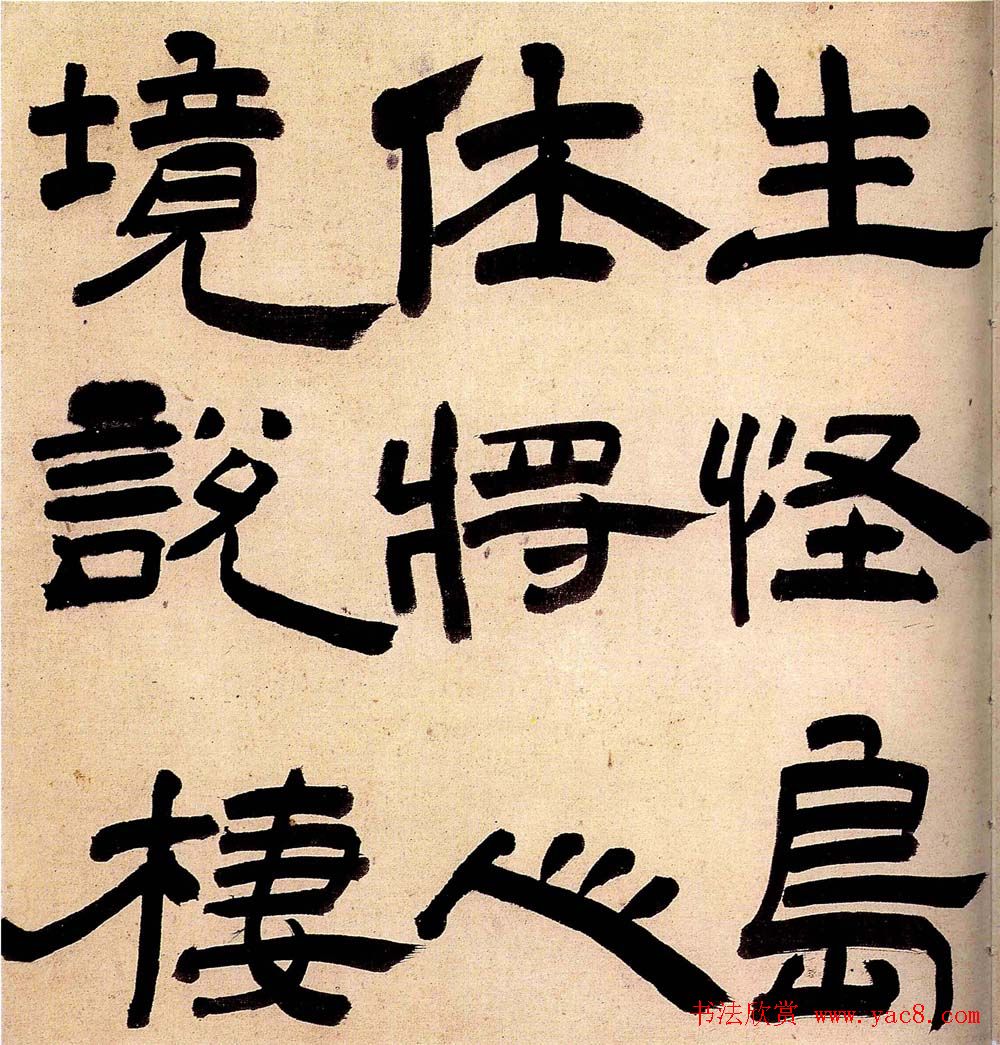 生怪島
將心
境說棲
书法欣赏 www.yac8.com